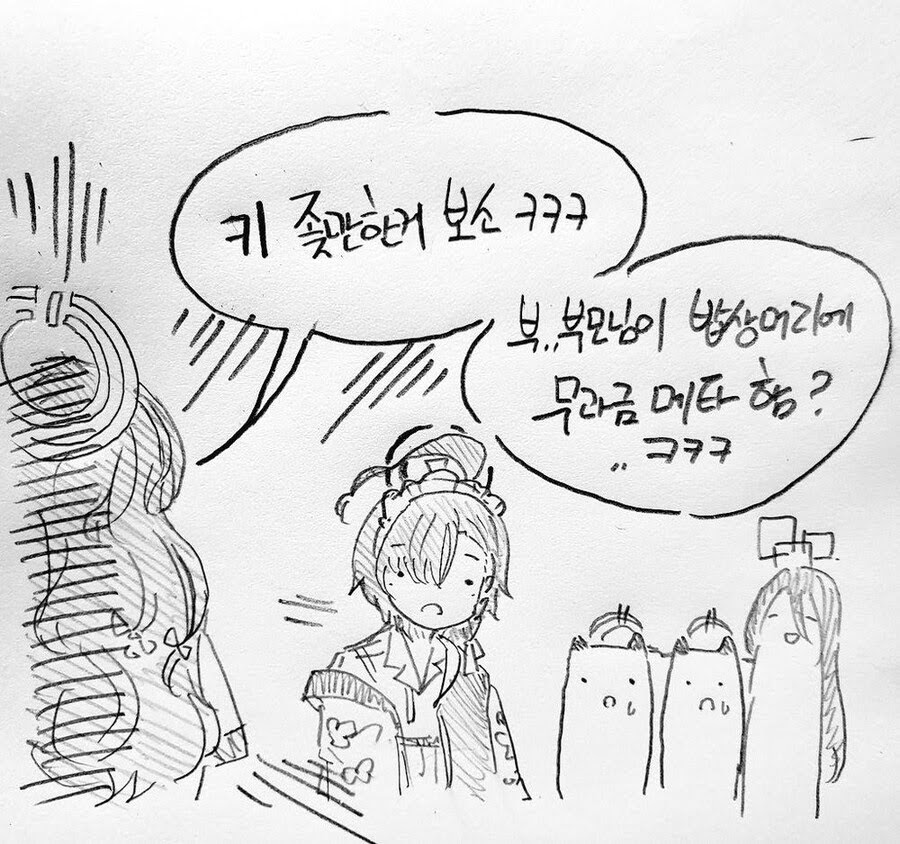 키 좆만한거 보소 ㅋㅋㅋ
부..부모님이 밥상머리에
무과금 메타 함?
..ㅋㅋㅋ